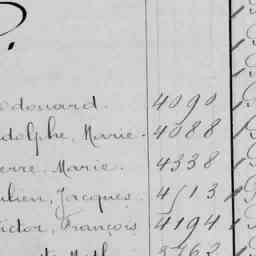 P.
edouard. 4090
dolphe, Marie. 4088
erre, Marie. 4338
ulien, Jacques. 4513
ictor, François 4194